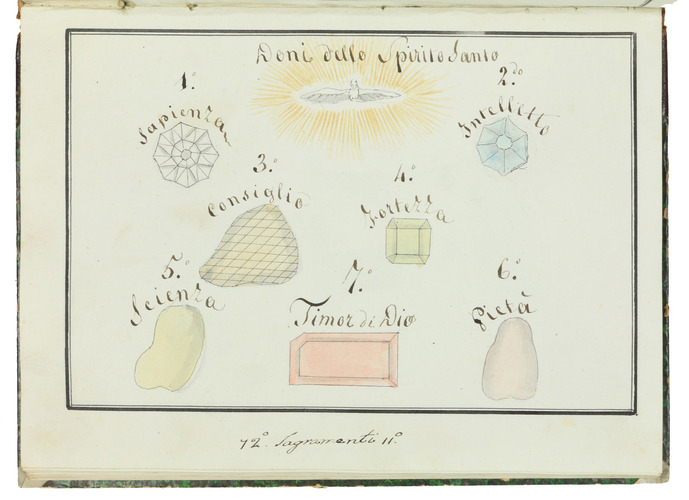 Doni dello Spirito Santo
1.° Sapienza
2.do Intelletto
3.° Consiglio
4.° Fortezza
5.° Scienza
7.° Timor di Dio
6.° Pietà
72° Sagramenti 11°